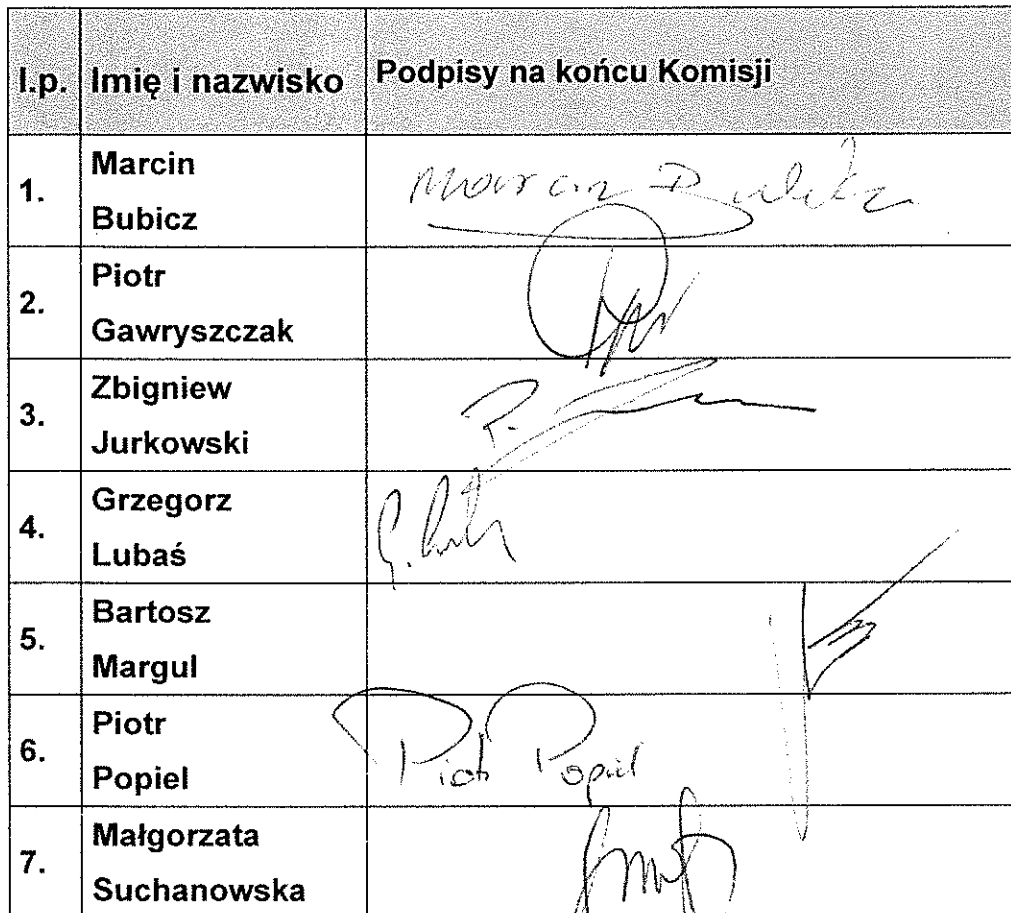 l.p. Imię i nazwisko Podpisy na końcu Komisji
1. Marcin
Bubicz
2. Piotr
Gawryszczak
3. Zbigniew
Jurkowski
4. Grzegorz
Lubaś
5. Bartosz
Margul
6. Piotr
Popiel
Piotr Popiel
7. Małgorzata
Suchanowska